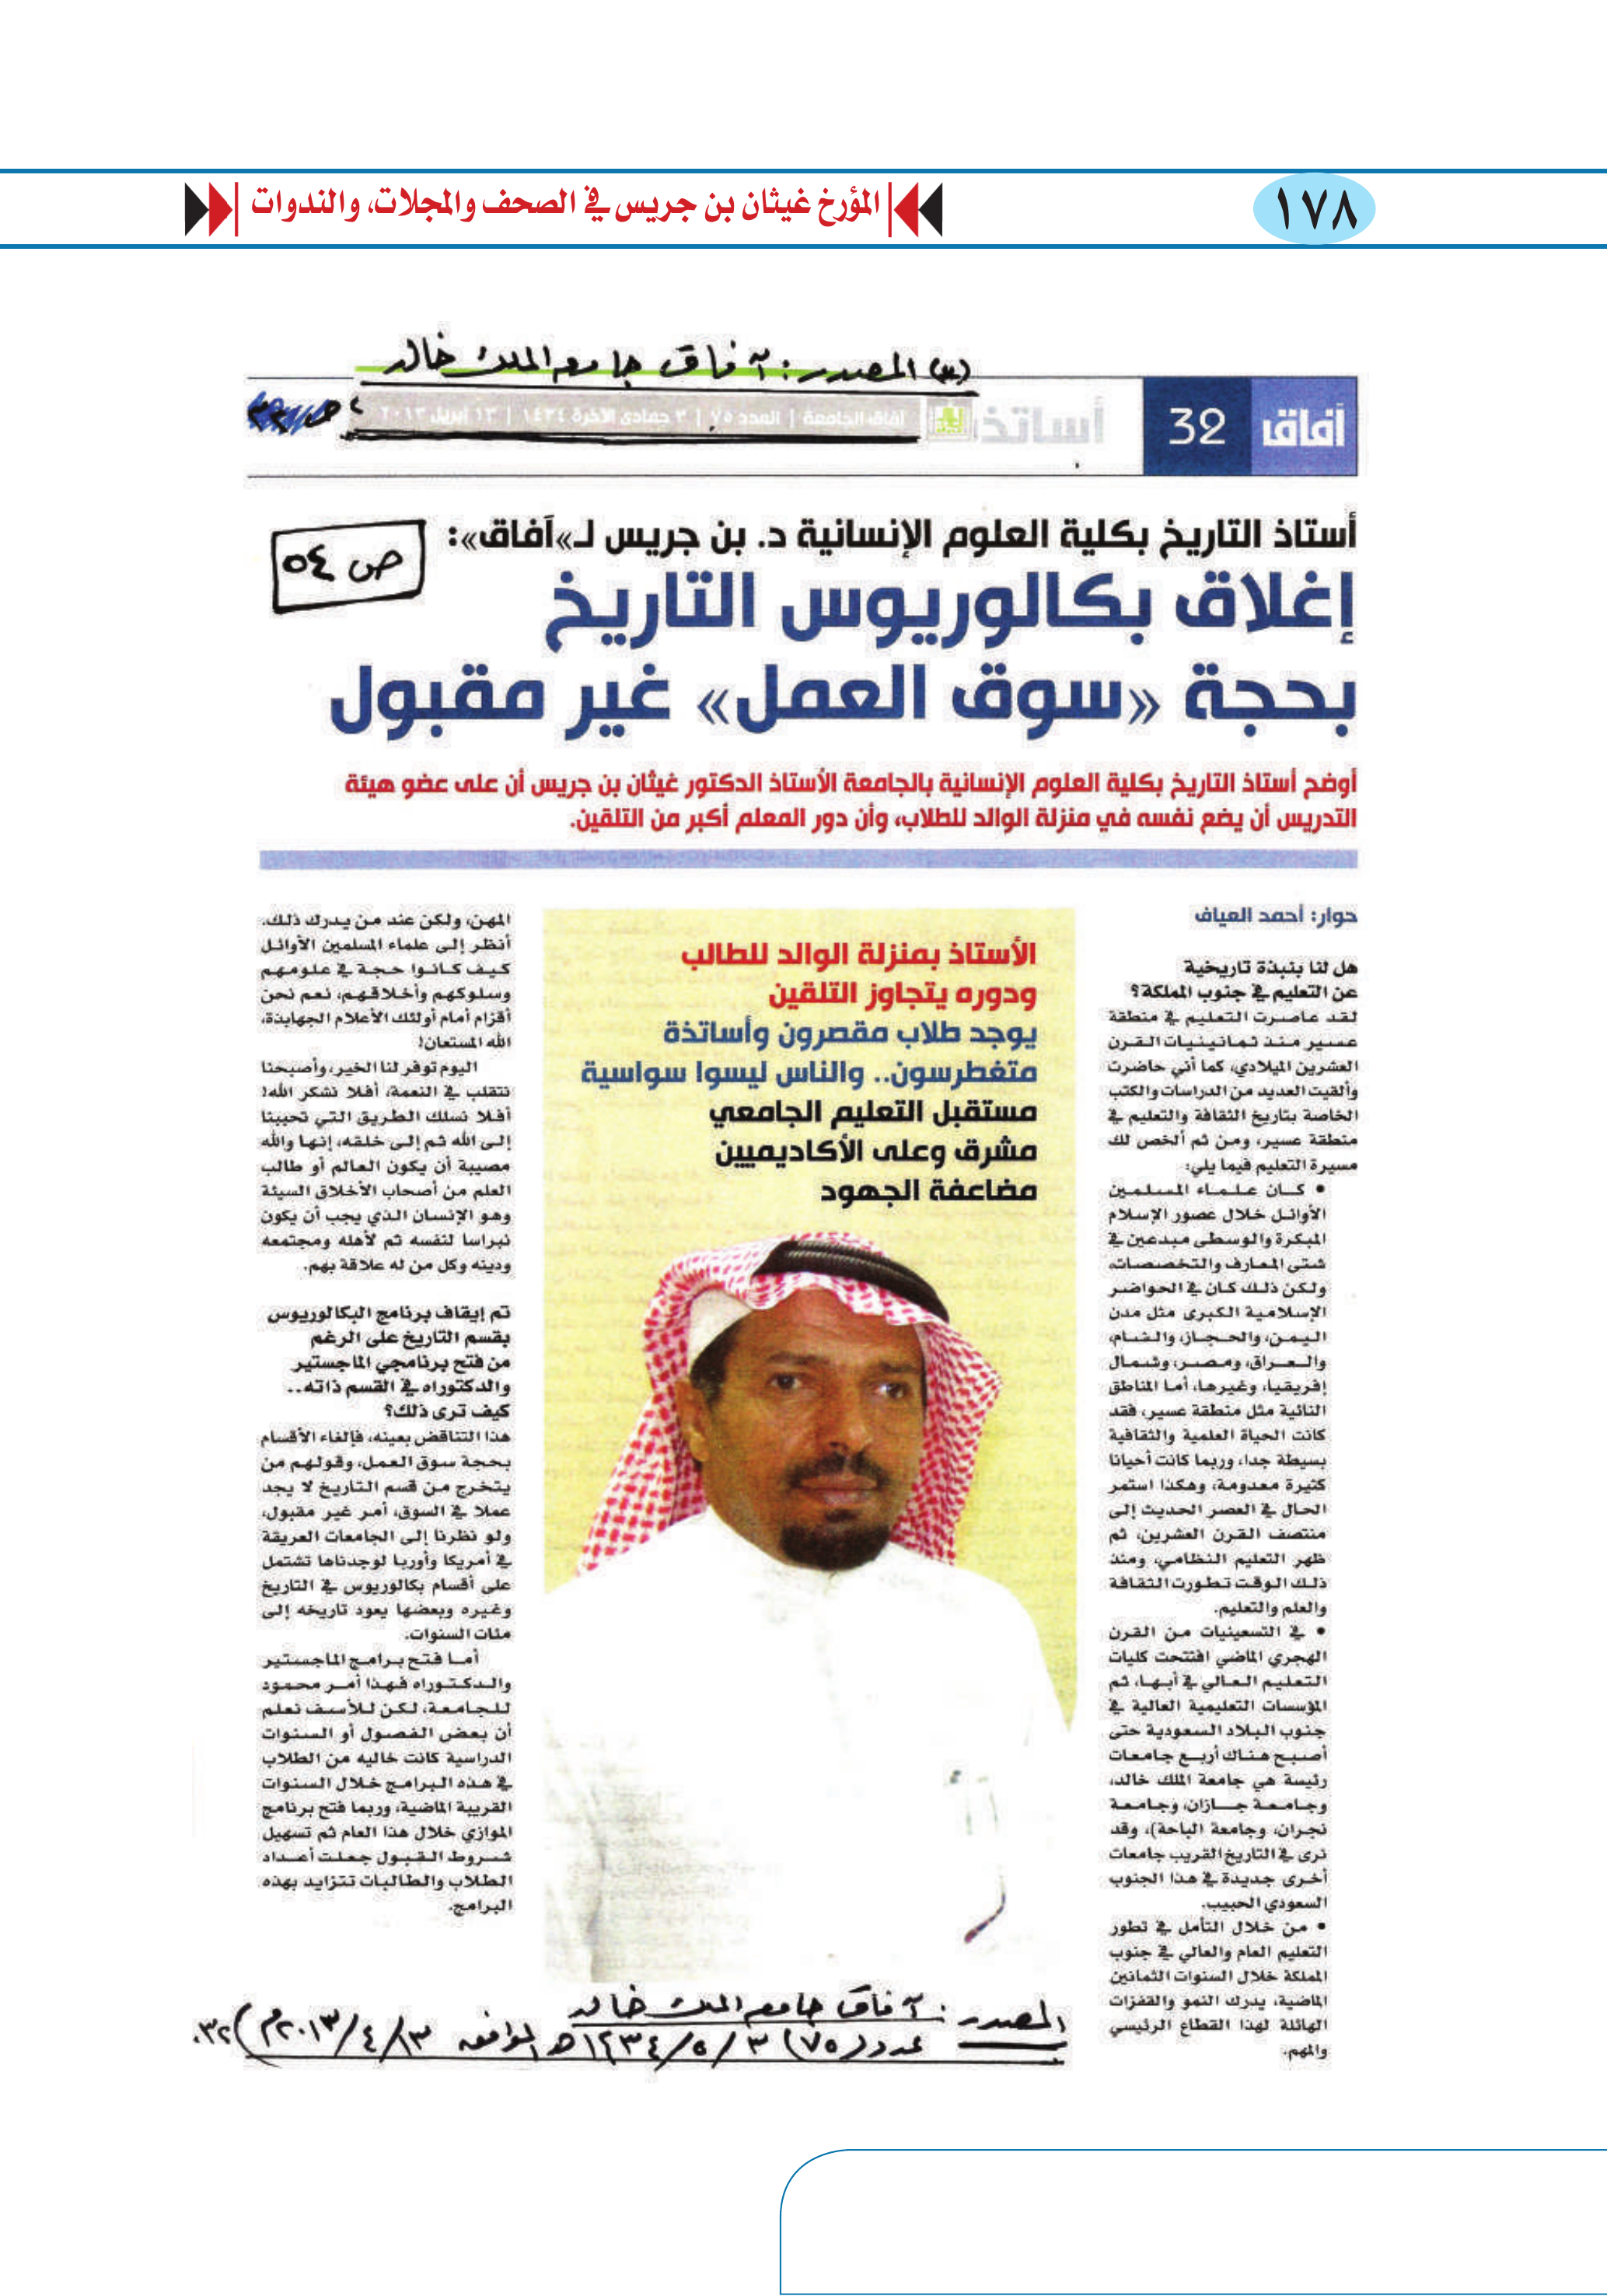 ١٧٨
المؤرخ غيثان بن جريس في الصحف والمجلات، والندوات
(٣) المصدر: آفاق جامعة الملك خالد
آفاق
32
أساتذة
آفاق الجامعة | العدد ٧٥ | ٣ جمادى الآخرة ١٤٣٤ | ١٣ أبريل ٢٠١٣
أستاذ التاريخ بكلية العلوم الإنسانية د. بن جريس لـ»آفاق«:
ص ٥٤
إغلاق بكالوريوس التاريخ
بحجة «سوق العمل» غير مقبول
أوضح أستاذ التاريخ بكلية العلوم الإنسانية بالجامعة الأستاذ الدكتور غيثان بن جريس أن على عضو هيئة
التدريس أن يضع نفسه في منزلة الوالد للطلاب، وأن دور المعلم أكبر من التلقين.
حوار: أحمد العياف
هل لنا بنبذة تاريخية
عن التعليم في جنوب المملكة؟
لقد عاصرت التعليم في منطقة
عسير منذ ثمانينيات القرن
العشرين الميلادي، كما أني حاضرت
وألقيت العديد من الدراسات والكتب
الخاصة بتاريخ الثقافة والتعليم في
منطقة عسير، ومن ثم ألخص لك
مسيرة التعليم فيما يلي:
• كان علماء المسلمين
الأوائل خلال عصور الإسلام
المبكرة والوسطى مبدعين في
شتى المعارف والتخصصات،
ولكن ذلك كان في الحواضر
الإسلامية الكبرى مثل مدن
اليمن، والحجاز، والشام،
والعراق، ومصر، وشمال
إفريقيا، وغيرها، أما المناطق
النائية مثل منطقة عسير، فقد
كانت الحياة العلمية والثقافية
بسيطة جدا، وربما كانت أحيانا
كثيرة معدومة، وهكذا استمر
الحال في العصر الحديث إلى
منتصف القرن العشرين، ثم
ظهر التعليم النظامي، ومنذ
ذلك الوقت تطورت الثقافة
والعلم والتعليم.
• في التسعينيات من القرن
الهجري الماضي افتتحت كليات
التعليم العالي في أبها، ثم
المؤسسات التعليمية العالية في
جنوب البلاد السعودية حتى
أصبح هناك أربع جامعات
رئيسة هي جامعة الملك خالد،
وجامعة جازان، وجامعة
نجران، وجامعة الباحة)، وقد
نرى في التاريخ القريب جامعات
أخرى جديدة في هذا الجنوب
السعودي الحبيب.
• من خلال التأمل في تطور
التعليم العام والعالي في جنوب
المملكة خلال السنوات الثمانين
الماضية، يدرك النمو والقفزات
الهائلة لهذا القطاع الرئيسي
والمهم.
الأستاذ بمنزلة الوالد للطالب
ودوره يتجاوز التلقين
يوجد طلاب مقصرون وأساتذة
متغطرسون.. والناس ليسوا سواسية
مستقبل التعليم الجامعي
مشرق وعلى الأكاديميين
مضاعفة الجهود
المهن، ولكن عند من يدرك ذلك.
أنظر إلى علماء المسلمين الأوائل
كيف كانوا حجة في علومهم
وسلوكهم وأخلاقهم، نعم نحن
أقزام أمام أولئك الأعلام الجهابذة،
الله المستعان!
اليوم توفر لنا الخير، وأصبحنا
نتقلب في النعمة، أفلا نشكر الله!
أفلا نسلك الطريق التي تحببنا
إلى الله ثم إلى خلقه، إنها والله
مصيبة أن يكون العالم أو طالب
العلم من أصحاب الأخلاق السيئة
وهو الإنسان الذي يجب أن يكون
نبراسا لنفسه ثم لأهله ومجتمعه
ودينه وكل من له علاقة بهم.
تم إيقاف برنامج البكالوريوس
بقسم التاريخ على الرغم
من فتح برنامجي الماجستير
والدكتوراه في القسم ذاته..
كيف ترى ذلك؟
هذا التناقض بعينه، فإلغاء الأقسام
بحجة سوق العمل، وقولهم من
يتخرج من قسم التاريخ لا يجد
عملا في السوق، أمر غير مقبول،
ولو نظرنا إلى الجامعات العريقة
في أمريكا وأوربا لوجدناها تشتمل
على أقسام بكالوريوس في التاريخ
وغيره وبعضها يعود تاريخه إلى
مئات السنوات.
أما فتح برامج الماجستير
والدكتوراه فهذا أمر محمود
للجامعة، لكن للأسف نعلم
أن بعض الفصول أو السنوات
الدراسية كانت خاليه من الطلاب
في هذه البرامج خلال السنوات
القريبة الماضية، وربما فتح برنامج
الموازي خلال هذا العام ثم تسهيل
شروط القبول جعلت أعداد
الطلاب والطالبات تتزايد بهذه
البرامج.
المصدر: آفاق جامعة الملك خالد
عدد (٧٥) ٣/٥/١٤٣٤هـ الموافق ١٣/٤/٢٠١٣م) ٣٢.